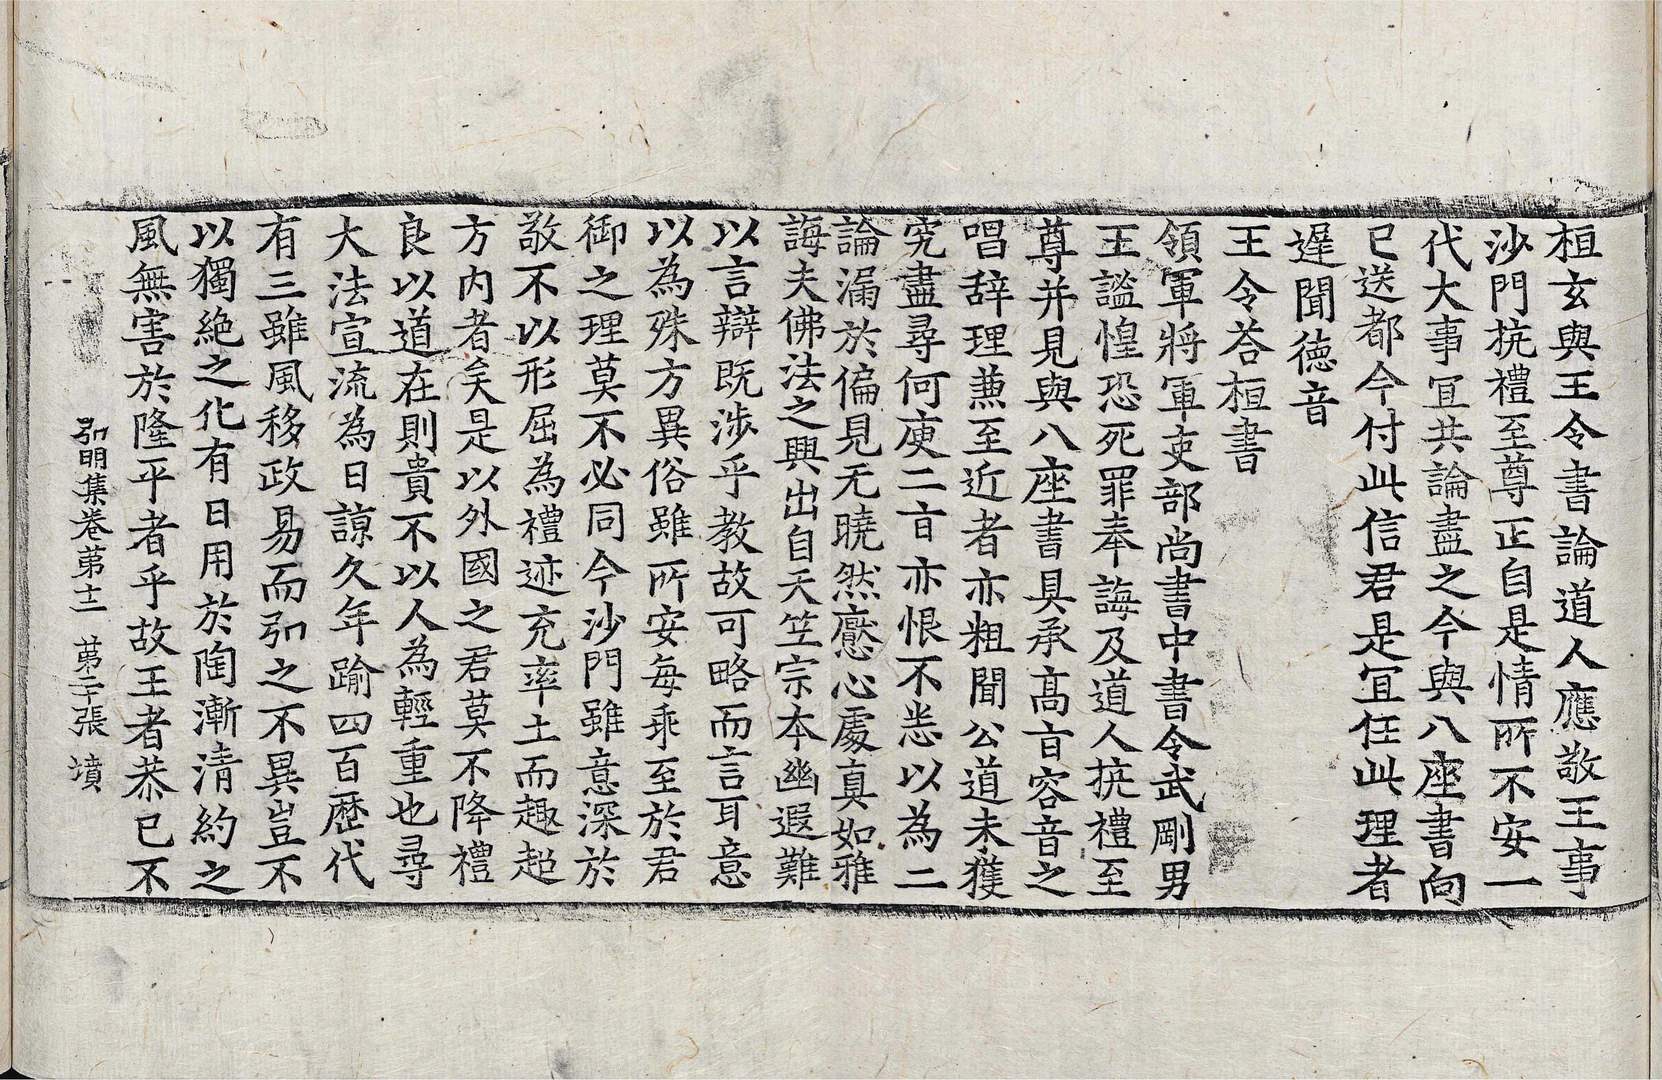 桓玄與王令書論道人應敬王事
沙門抗禮至尊正自是情所不安一
代大事冝共論盡之今與八座書向
已送都今付此信君是冝任此理者
遟聞德音
王令荅桓書
領軍將軍吏部尚書中書令武剛男
王謐惶恐死罪奉誨及道人抗禮至
尊并見與八座書具承高㫖容音之
唱辞理兼至近者亦粗聞公道未獲
究盡尋何庾二㫖亦恨不悉以為二
論漏於偏見无曉然懕心處真如雅
誨夫佛法之興出自天笠宗本幽遐難
以言辯既涉乎教故可略而言耳意
以為殊方異俗雖所安每乖至於君
御之理莫不必同今沙門雖意深於
敬不以形屈為禮迹充率土而趣超
方内者矣是以外國之君莫不降禮
良以道在則貴不以人為輕重也尋
大法宣流為日諒久年踰四百歷代
有三雖風移政易而弘之不異豈不
以獨絶之化有日用於陶漸清約之
風無害於隆平者乎故王者恭已不
弘明集卷第十二 第二十張 墳